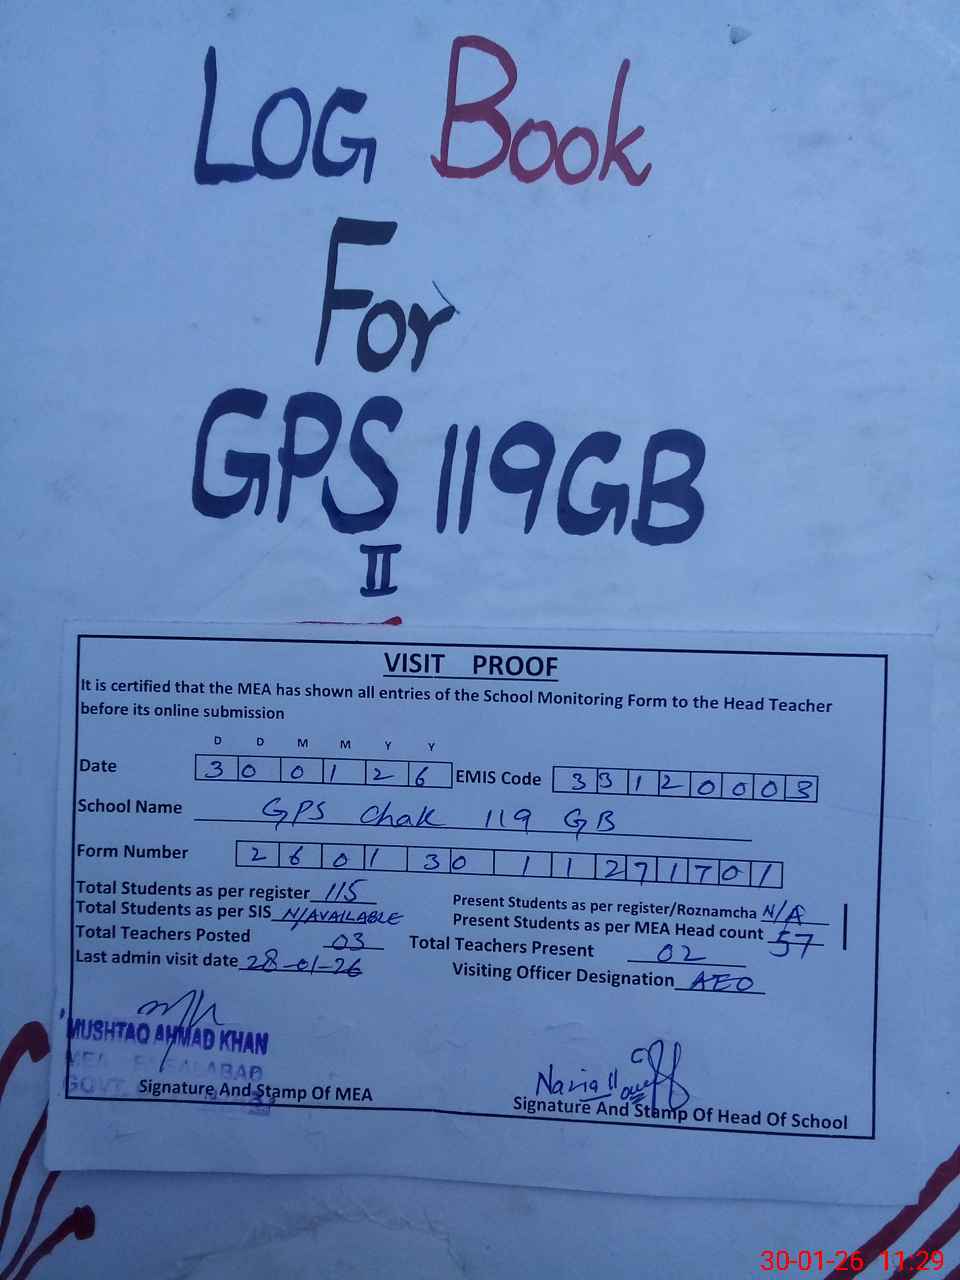 LOG Book
For
GPS 119GB
II
VISIT PROOF
It is certified that the MEA has shown all entries of the School Monitoring Form to the Head Teacher
before its online submission
D D M M Y Y
Date 3 0 0 1 2 6 EMIS Code 3 3 1 2 0 0 0 3
School Name GPS Chak 119 GB
Form Number 2 6 0 1 3 0 1 1 2 7 1 7 0 1
Total Students as per register 115
Present Students as per register/Roznamcha N/A
Total Students as per SIS N/AVAILABLE
Present Students as per MEA Head count 57
Total Teachers Posted 03 Total Teachers Present 02
Last admin visit date 28-01-26 Visiting Officer Designation AEO
MUSHTAQ AHMAD KHAN
MEA
GOVT.
Nazia
Signature And Stamp Of MEA
Signature And Stamp Of Head Of School
30-01-26 11:29